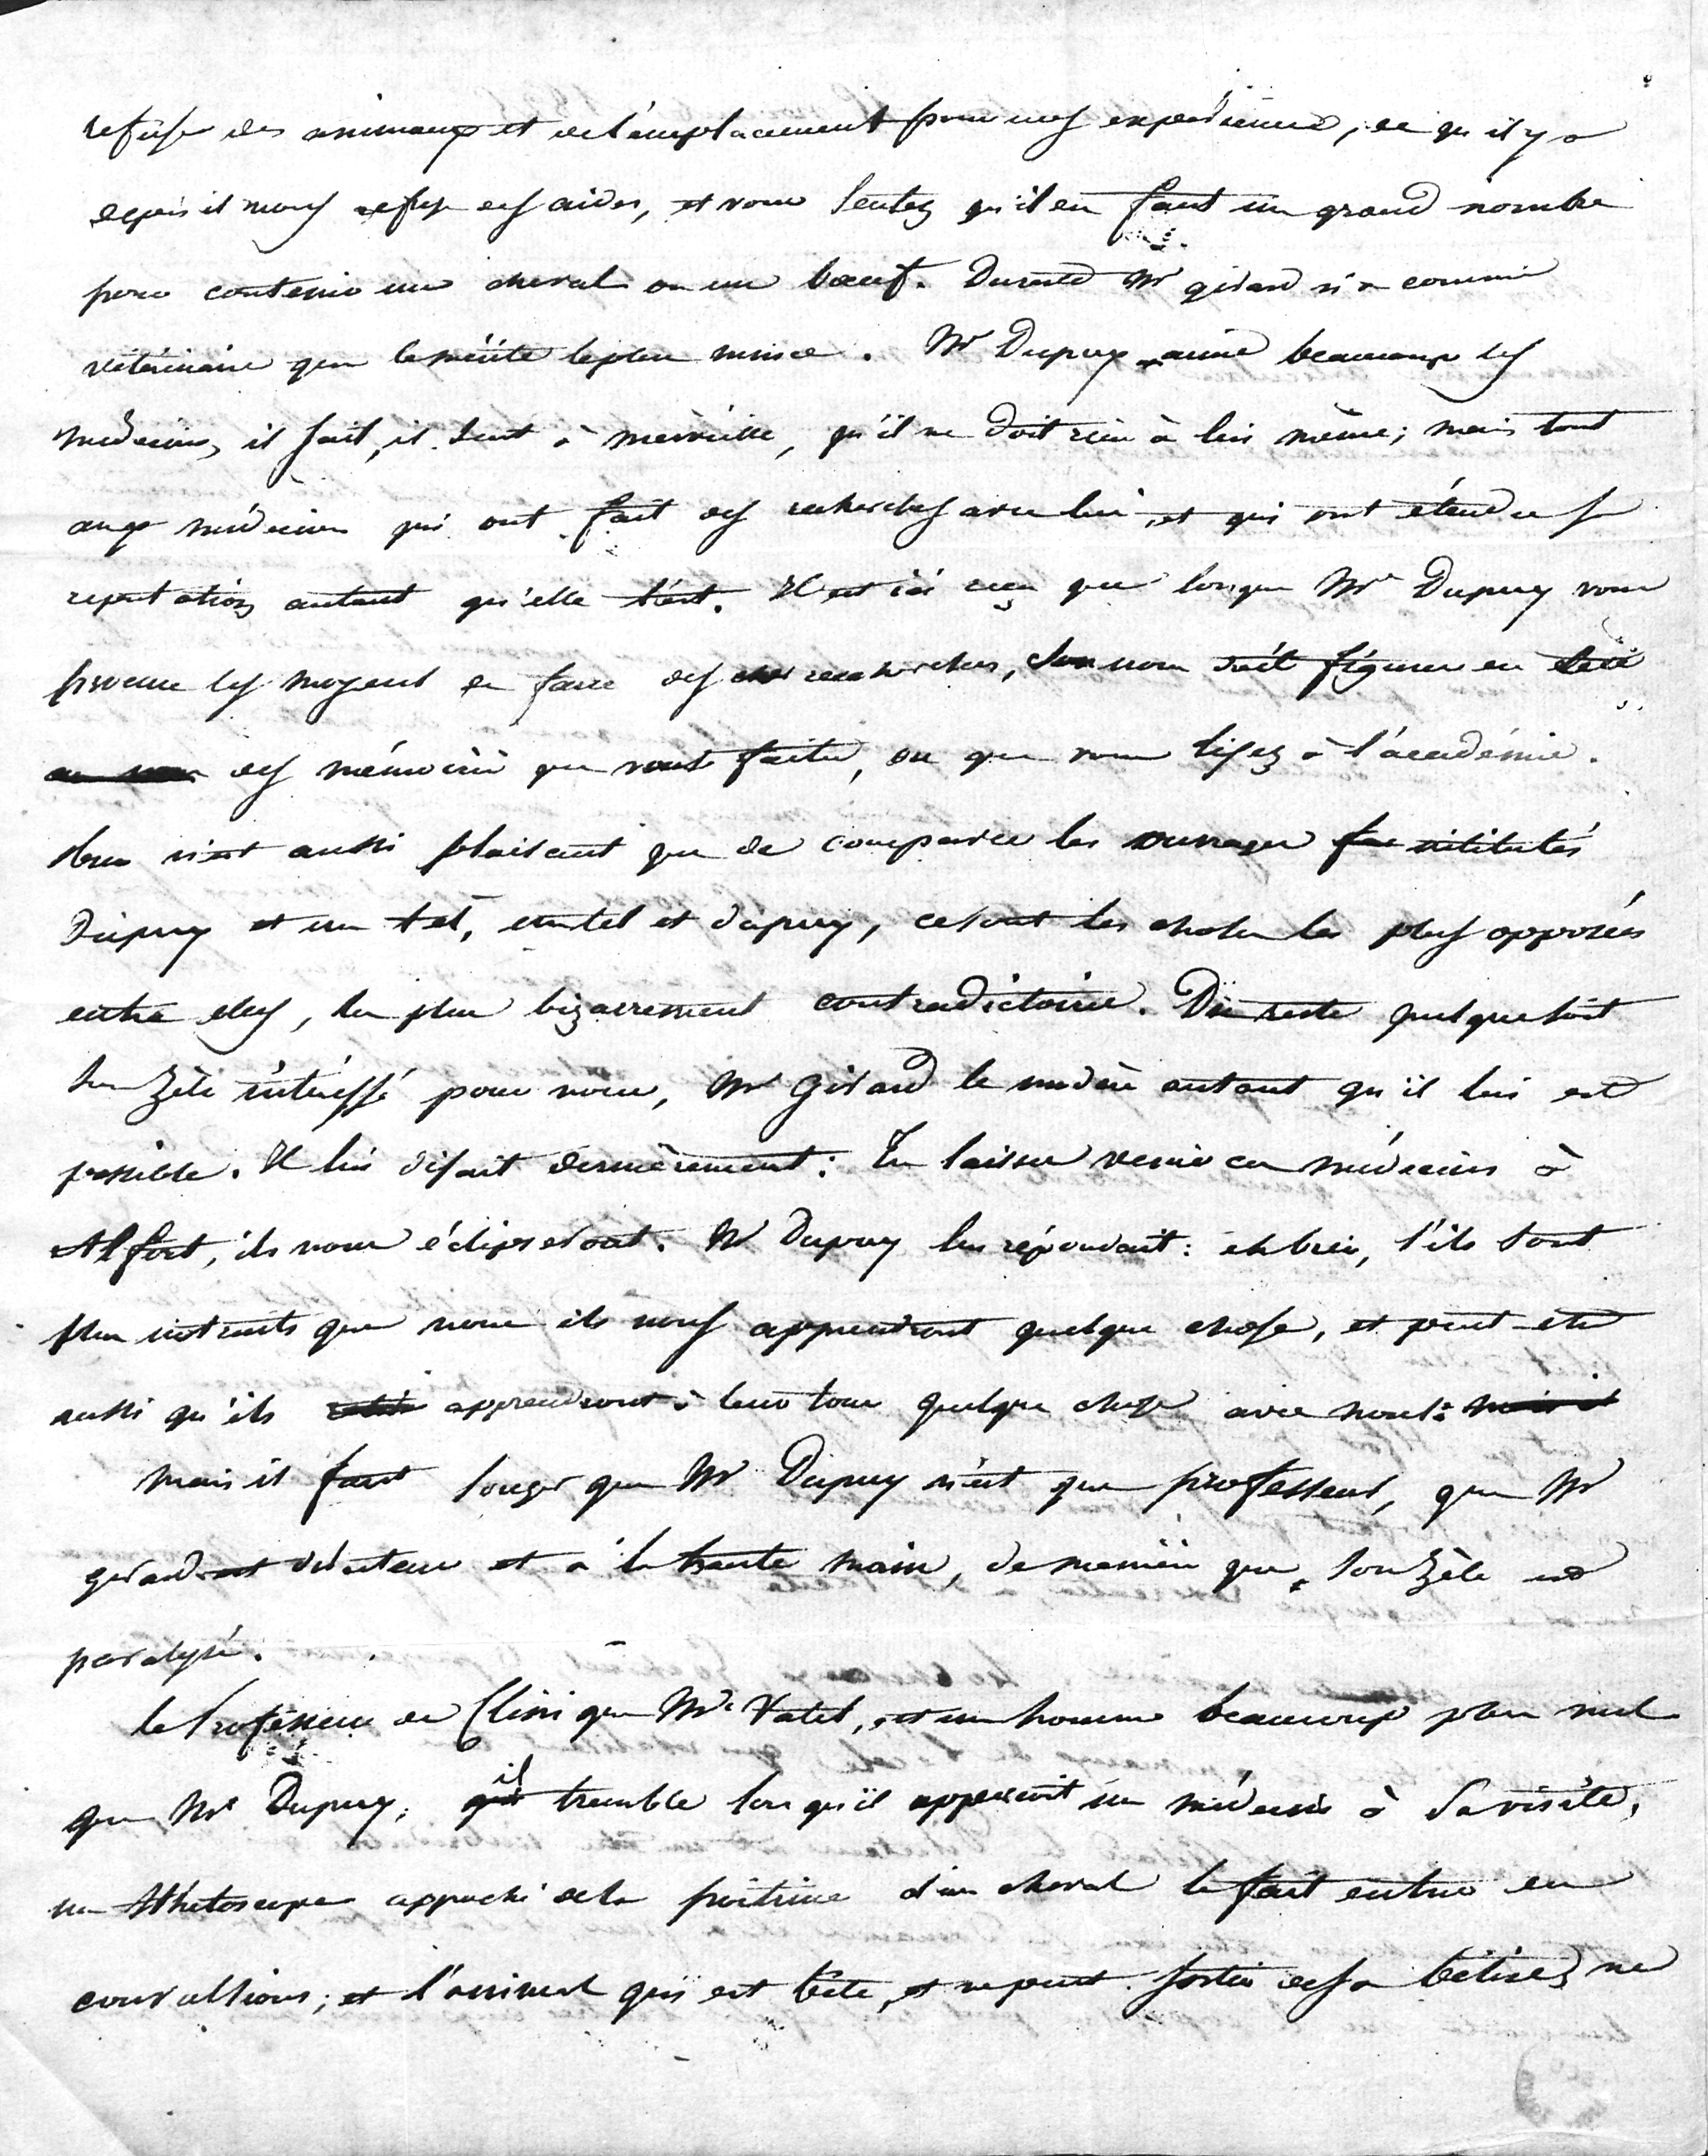 refuse des animaux et de l'emplacement pour nos expériences, ce qu'il y a
de pis il nous refuse des aides, et vous sentez qu'il en faut un grand nombre
pour contenir un cheval ou un bœuf. Du reste Mr girard n'a comme
vétérinaire que le mérite le plus mince. Mr Dupuy aime beaucoup les
médecins, il sait, il sent à merveille, qu'il ne doit rien à lui même; mais tout
aux médecins qui ont fait des recherches avec lui, et qui ont étendu sa
reputation autant qu'elle l'est. Il est ici reçu que lorsque Mr Dupuy vous
procure les moyens de faire des recherches, son nom doit figurer en tête
des mémoires que vous faites, ou que vous lisez à l'académie.
Rien n'est aussi plaisant que de comparer les ouvrages intitulés
Dupuy et un tel, un tel et dupuy, ce sont les choses les plus opposées
entre elles, les plus bizarrement contradictoires. Du reste quelque soit
son zèle intéressé pour nous, Mr Girard le modère autant qu'il lui est
possible. Il lui disait dernièrement: Tu laisses venir ces médecins à
Alfort, ils nous éclipseront. Mr Dupuy lui répondait: eh bien, s'ils sont
plus instruits que nous ils nous apprendront quelque chose, et peut-être
aussi qu'ils apprendront à leur tour quelque chose avec nous:
Mais il faut songer que Mr Dupuy n'est que professeur, que Mr
girard est directeur et a la haute main, de manière que son zèle est
paralysé.
le Professeur de Clinique Mr Vatel, est un homme beaucoup plus nul
que Mr Dupuy; il tremble lorsqu'il apperçoit un médecin à sa visite,
un sthétoscope approché de la poitrine d'un cheval le fait entrer en
convulsions; et l'animal qui est bête, et ne peut sortir de sa bêtise, ne